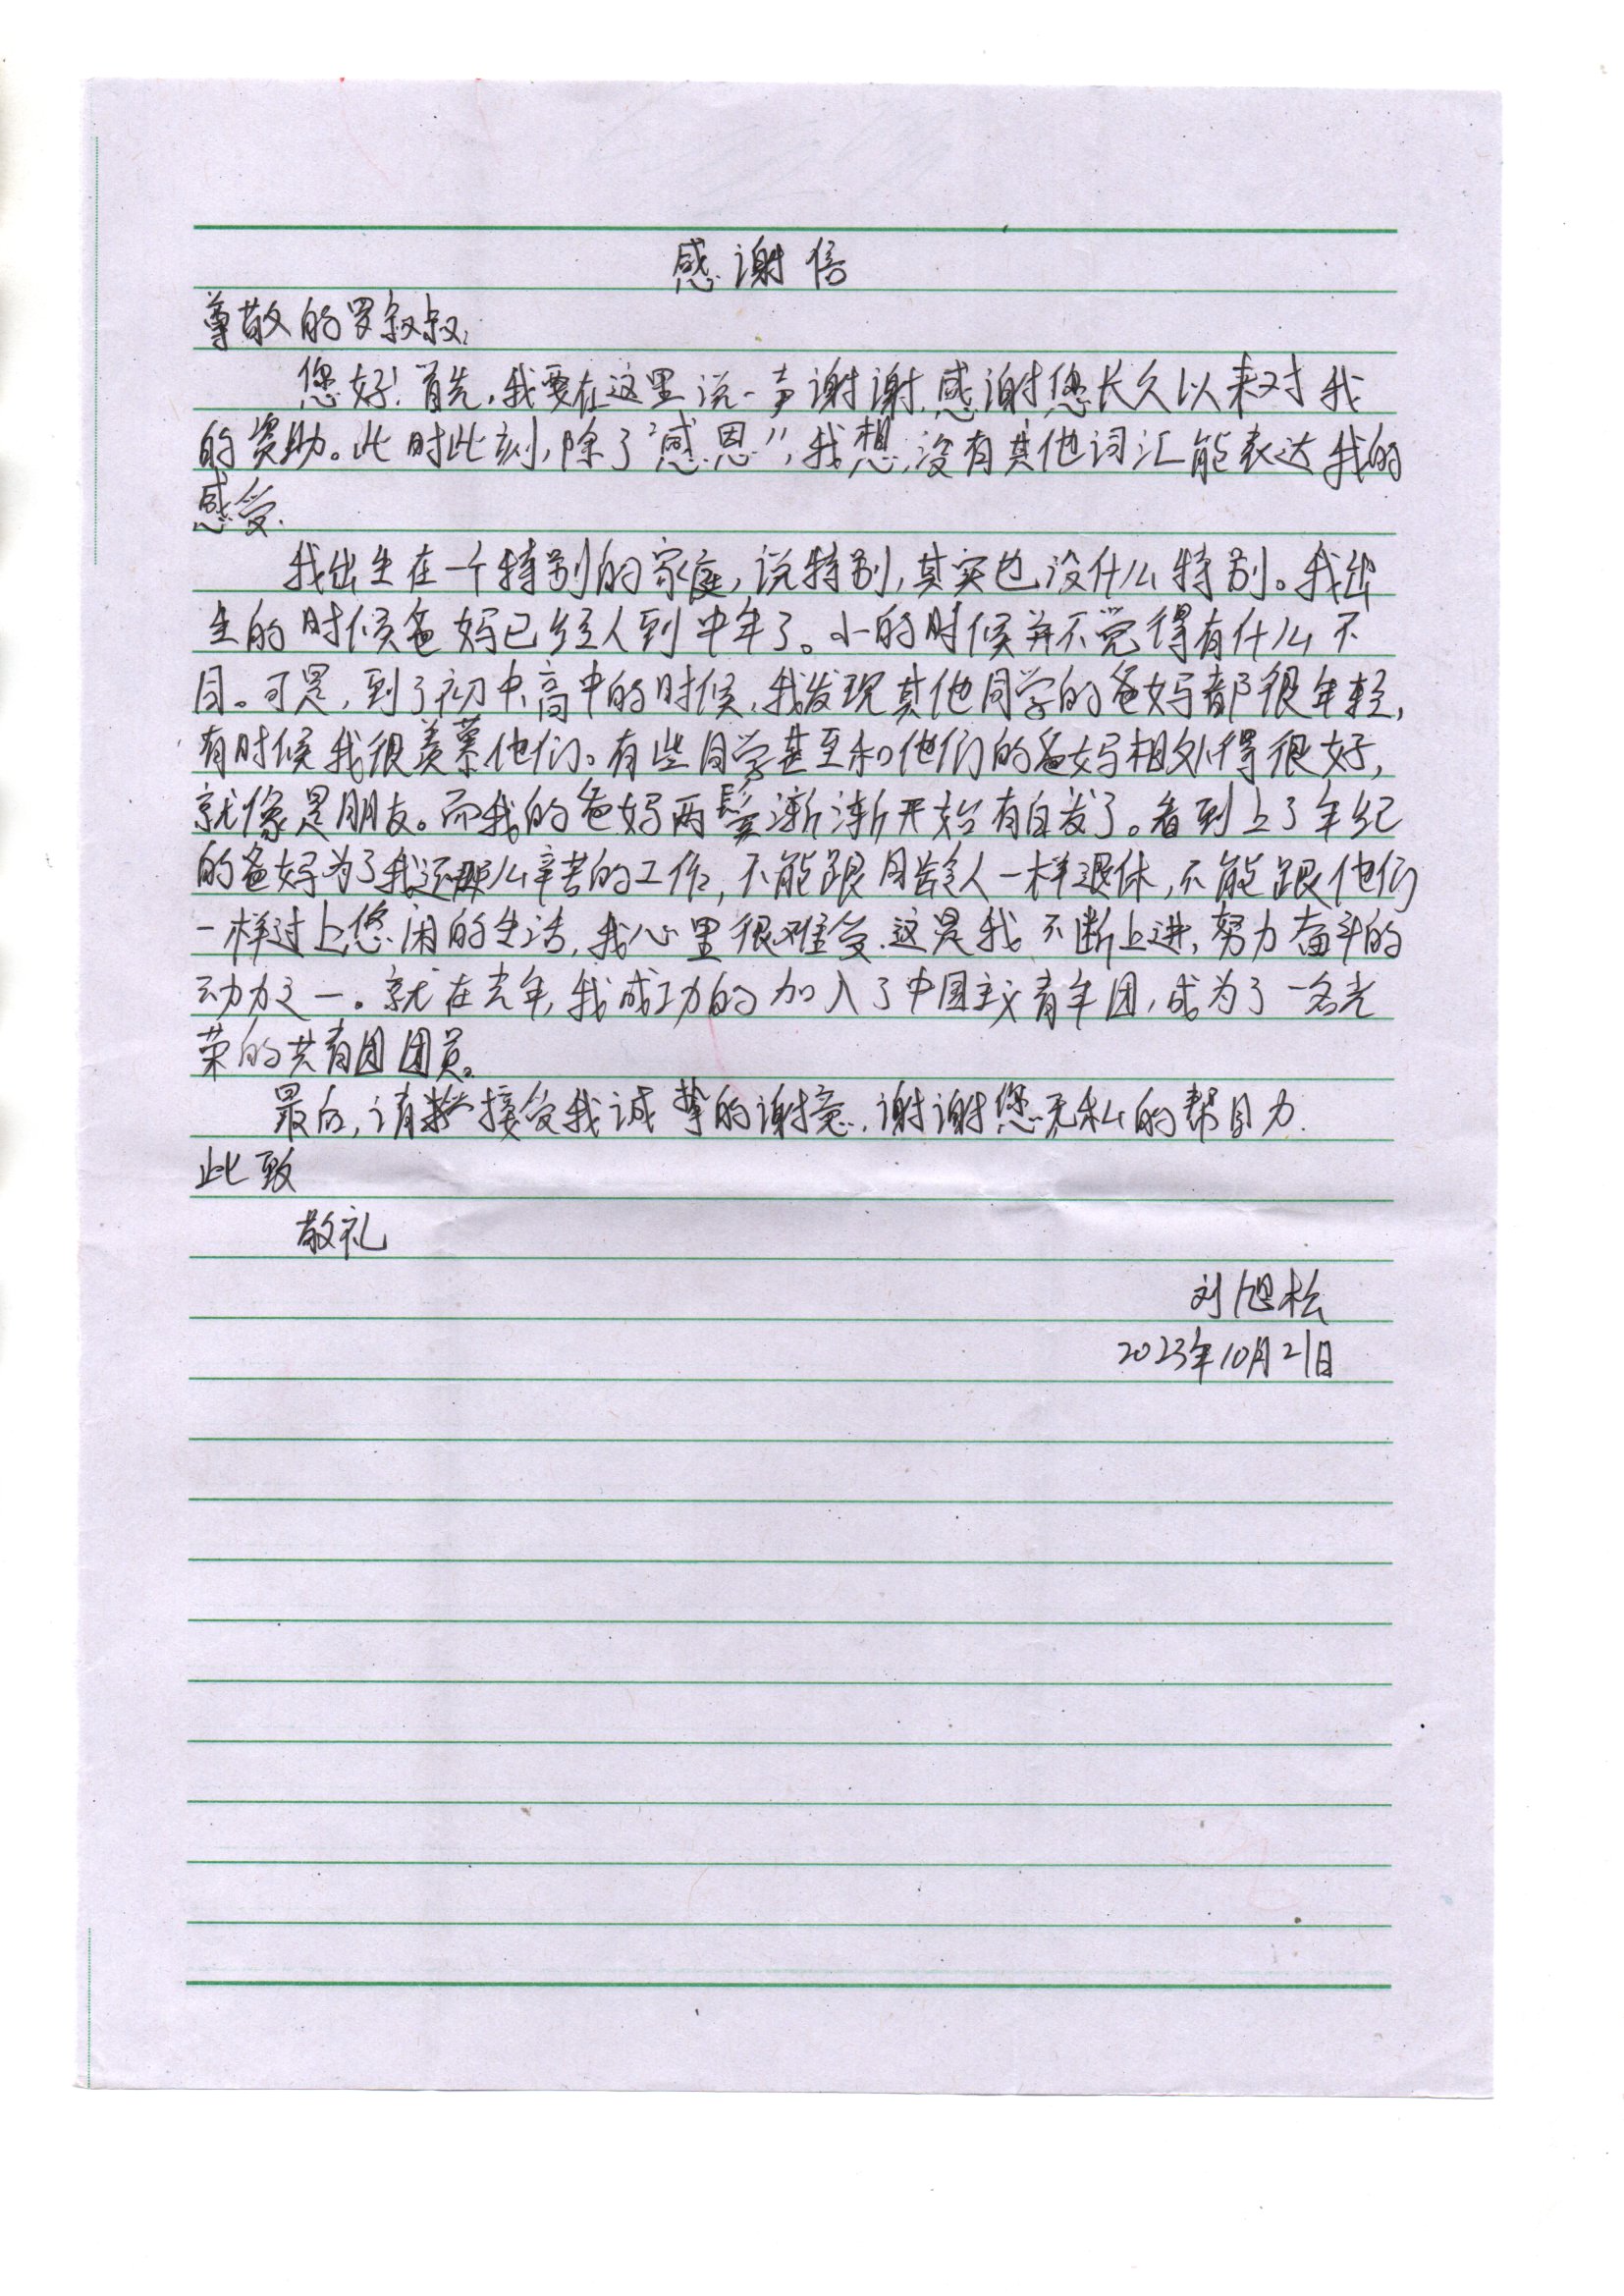 感谢信
尊敬的罗叔叔:
您好!首先,我要在这里说一声谢谢.感谢您长久以来对我
的资助。此时此刻,除了“感恩”,我想,没有其他词汇能表达我的
感受.
我出生在一个特别的家庭,说特别,其实也没什么特别。我出
生的时候爸妈已经人到中年了。小的时候并不觉得有什么不
同。可是,到了初中、高中的时候,我发现其他同学的爸妈都很年轻,
有时候我很羡慕他们。有些同学甚至和他们的爸妈相处得很好,
就像是朋友。而我的爸妈两鬓渐渐开始有白发了。看到上了年纪
的爸妈为了我还那么辛苦的工作,不能跟同龄人一样退休,不能跟他们
一样过上悠闲的生活,我心里很难受.这是我不断上进,努力奋斗的
动力之一。就在去年,我成功的加入了中国主义青年团,成为了一名光
荣的共青团团员。
最后,请接受我诚挚的谢意.谢谢您无私的帮助.
此致
敬礼
刘旭松
2023年10月21日